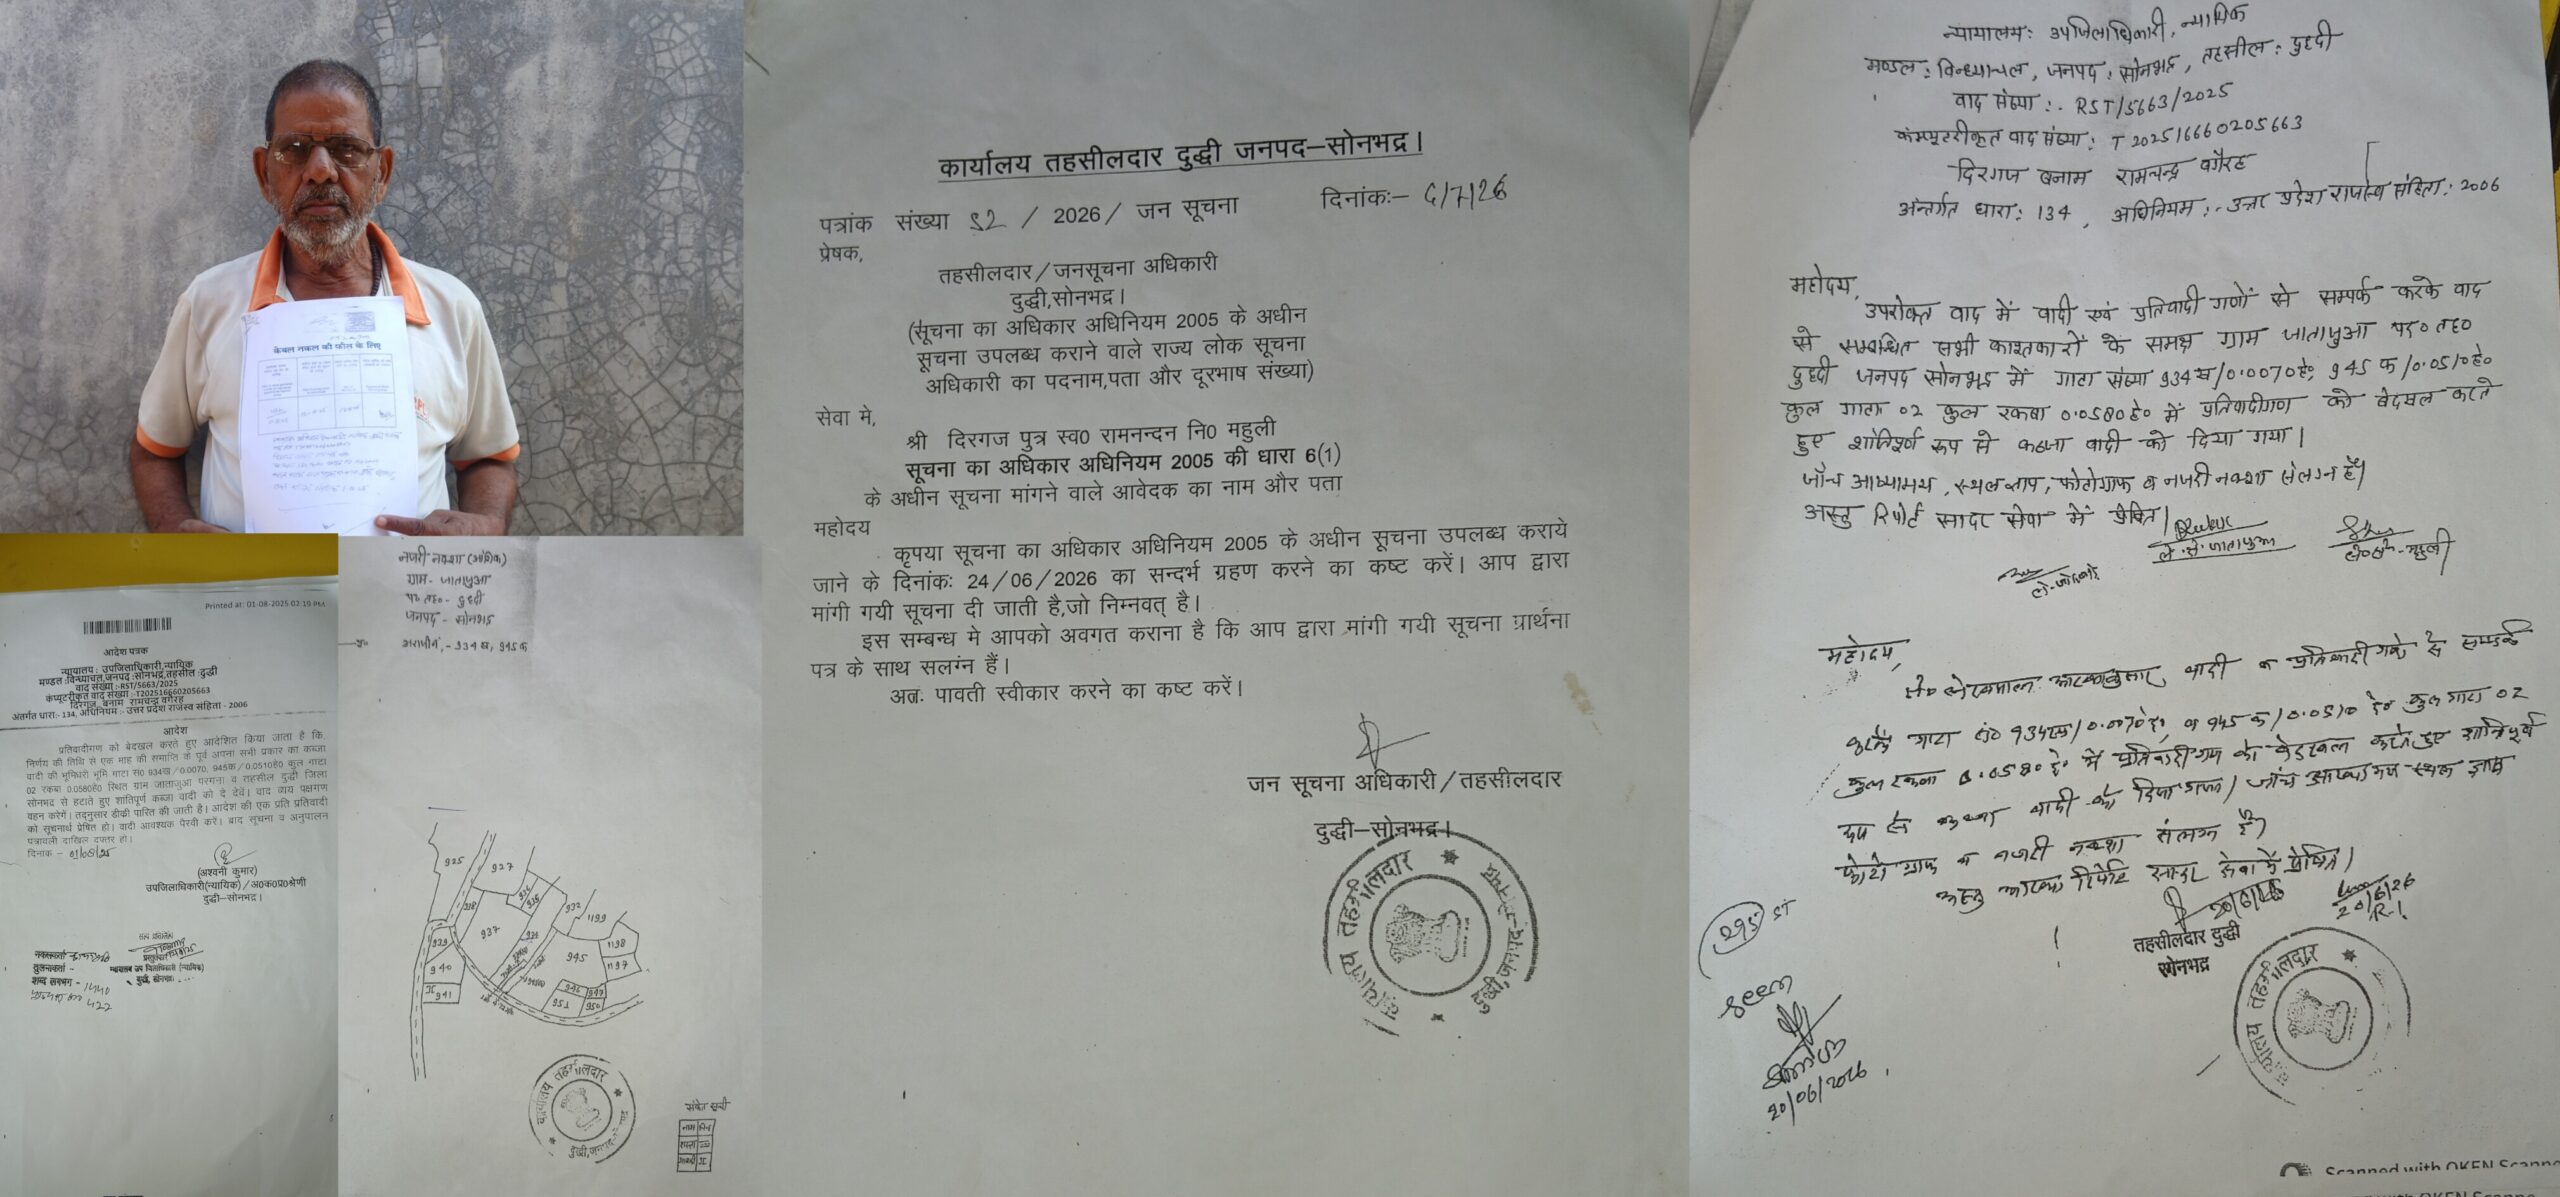 केवल नकल की फीस के लिए
Printed at: 01-08-2025 02:19 PM
आदेश पत्रक
न्यायालय : उपजिलाधिकारी,न्यायिक
मण्डल :विन्ध्याचल,जनपद :सोनभद्र,तहसील :दुद्धी
वाद संख्या :-RST/5663/2025
कंप्यूटरीकृत वाद संख्या :-T202516660205663
दिरगज, बनाम रामचन्द्र वगैरह
अंतर्गत धारा:- 134, अधिनियम :- उत्तर प्रदेश राजस्व संहिता - 2006
आदेश
प्रतिवादीगण को बेदखल करते हुए आदेशित किया जाता है कि,
निर्णय की तिथि से एक माह की समाप्ति के पूर्व अपना सभी प्रकार का कब्जा
वादी की भूमिधरी भूमि गाटा स0 934ख/0.0070, 945क/0.0510हे0 कुल गाटा
02 रकबा 0.0580हे0 स्थित ग्राम जाताजुआ परगना व तहसील दुद्धी जिला
सोनभद्र से हटाते हुए शांतिपूर्ण कब्जा वादी को दे देवें। वाद व्यय पक्षगण
वहन करेगें। तद्नुसार डीकी पारित की जाती है। आदेश की एक प्रति प्रतिवादी
को सूचनार्थ प्रेषित हो। वादी आवश्यक पैरवी करें। बाद सूचना व अनुपालन
पत्रावली दाखिल दफ्तर हो।
दिनांक - 01/08/25
(अश्वनी कुमार)
उपजिलाधिकारी(न्यायिक)/अ0क0प्र0श्रेणी
दुद्धी-सोनभद्र।
नजरी नक्शा (आंशिक)
ग्राम- जाताजुआ
प० तह०- दुद्दी
जनपद - सोनभद्र
आराजीनं,- 934 ख, 945 क
925
927
932
1199
937
929
940
941
945
1198
1197
951
950
कार्यालय तहसीलदार
दुद्धी,जनपद-सोनभद्र
संकेत सूची
कार्यालय तहसीलदार दुद्धी जनपद–सोनभद्र।
पत्रांक संख्या 52 / 2026 / जन सूचना दिनांकः– 6/7/26
प्रेषक,
तहसीलदार/जनसूचना अधिकारी
दुद्धी,सोनभद्र।
(सूचना का अधिकार अधिनियम 2005 के अधीन
सूचना उपलब्ध कराने वाले राज्य लोक सूचना
अधिकारी का पदनाम,पता और दूरभाष संख्या)
सेवा मे,
श्री दिरगज पुत्र स्व0 रामनन्दन नि0 महुली
सूचना का अधिकार अधिनियम 2005 की धारा 6(1)
के अधीन सूचना मांगने वाले आवेदक का नाम और पता
महोदय
कृपया सूचना का अधिकार अधिनियम 2005 के अधीन सूचना उपलब्ध कराये
जाने के दिनांकः 24/06/2026 का सन्दर्भ ग्रहण करने का कष्ट करें। आप द्वारा
मांगी गयी सूचना दी जाती है,जो निम्नवत् है।
इस सम्बन्ध मे आपको अवगत कराना है कि आप द्वारा मांगी गयी सूचना प्रार्थना
पत्र के साथ सलग्न हैं।
अतः पावती स्वीकार करने का कष्ट करें।
जन सूचना अधिकारी/तहसीलदार
दुद्धी–सोनभद्र।
कार्यालय तहसीलदार
दुद्धी,जनपद-सोनभद्र
न्यायालय: उपजिलाधिकारी, न्यायिक
मण्डल: विन्ध्याचल, जनपद: सोनभद्र, तहसील: दुद्दी
वाद संख्या:- RST/5663/2025
कम्प्यूटरीकृत वाद संख्या: T202516660205663
दिरगज बनाम रामचन्द्र वगैरह
अन्तर्गत धारा: 134, अधिनियम:- उत्तर प्रदेश राजस्व संहिता: 2006
महोदय,
उपरोक्त वाद में वादी एवं प्रतिवादी गणों से सम्पर्क करके वाद
से सम्बन्धित सभी काश्तकारों के समक्ष ग्राम जाताजुआ प० तह०
दुद्दी जनपद सोनभद्र में गाटा संख्या 934ख/0.0070हे०, 945 क/0.0510हे०
कुल गाटा 02 कुल रकबा 0.0580हे० में प्रतिवादीगण को बेदखल करते
हुए शांतिपूर्ण रूप से कब्जा वादी को दिया गया।
जाँच आख्यामय, स्थल ज्ञाप, फोटोग्राफ व नजरी नक्शा संलग्न है।
अस्तु रिपोर्ट सादर सेवा में प्रेषित।
महोदय,
वादी व प्रतिवादी गणों से सम्पर्क
करके गाटा सं० 934ख/0.0070हे०, व 945 क/0.0510 हे० कुल गाटा 02
कुल रकबा 0.0580 हे० में प्रतिवादी गण को बेदखल करते हुए शान्तिपूर्ण
रूप से कब्जा वादी को दिया गया। जाँच आख्या मय स्थल ज्ञाप
फोटो ग्राफ व नजरी नक्शा संलग्न है।
अस्तु आख्या रिपोर्ट सादर सेवा में प्रेषित।
20/6/26
20/6/26
R.I
तहसीलदार दुद्धी
सोनभद्र
295
Seen
20/06/2026
कार्यालय तहसीलदार
Scanned with OKEN Scanner